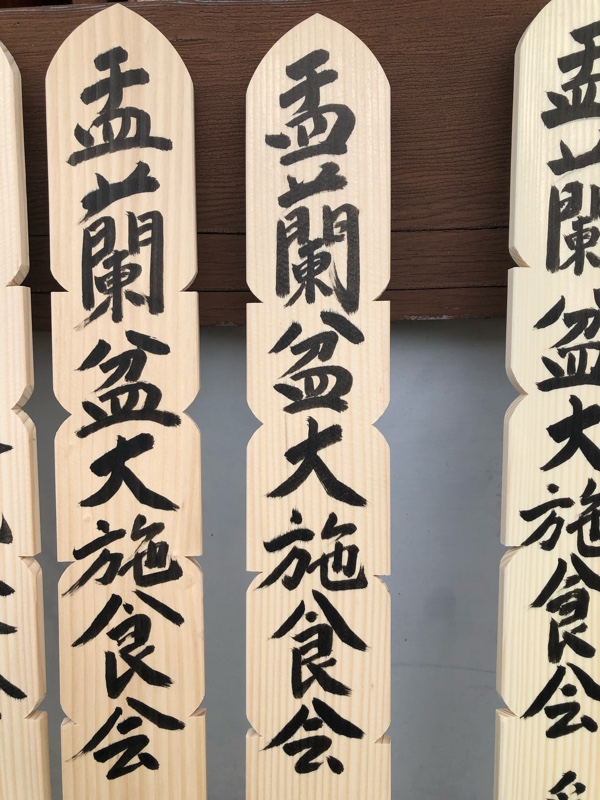 盂蘭盆大施食会
盂蘭盆大施食会
盂蘭盆大施食会